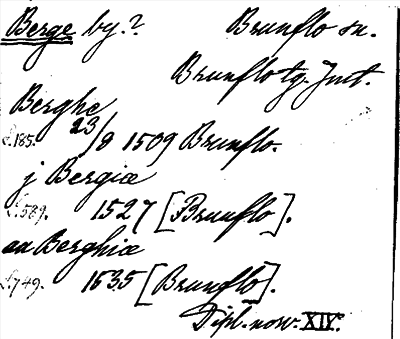 Berge by.? Brunflo sn.
Brunflo tg. Jmt.
Berghe
S.185. 23/8 1509 Brunflo.
j Bergiæ
S.589. 1527 [Brunflo].
aa Berghiæ
S.749. 1535 [Brunflo].
Dipl. norv. XIV.